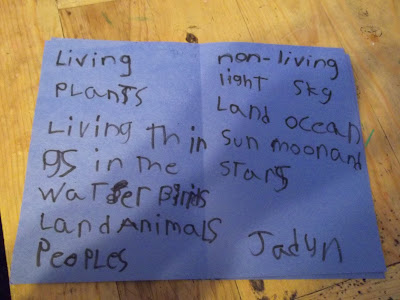 Living
PLANTS
Living thin
gs in the
WaTer Birds
LandAnimals
PeoPLes
non-living
light sky
Land ocean
Sun moonand
STarS
Jadyn